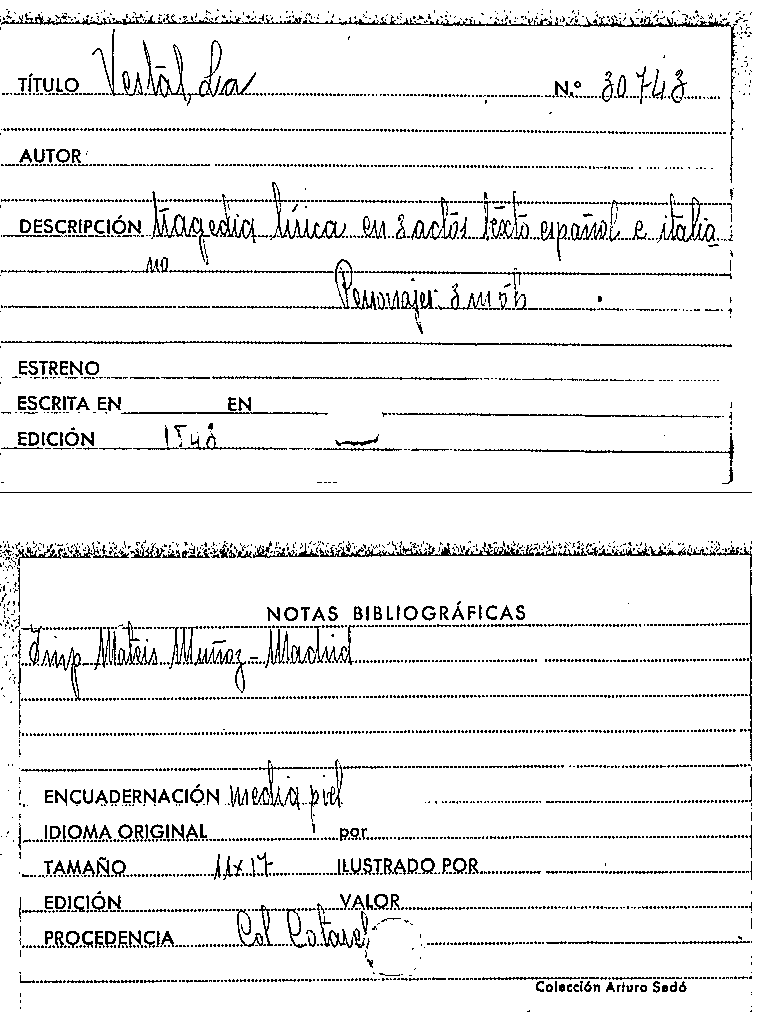 TÍTULO Vestal, La N.º 30743
AUTOR
DESCRIPCIÓN tragedia lírica en 3 actos texto español e italia
no
Personajes 3 m 5 h
ESTRENO
ESCRITA EN EN
EDICIÓN
NOTAS BIBLIOGRÁFICAS
Imp Mateis Muñoz - Madrid
ENCUADERNACIÓN media piel
IDIOMA ORIGINAL por
TAMAÑO 11x17 ILUSTRADO POR
EDICIÓN VALOR
PROCEDENCIA Col Cotarel
Colección Arturo Sedó